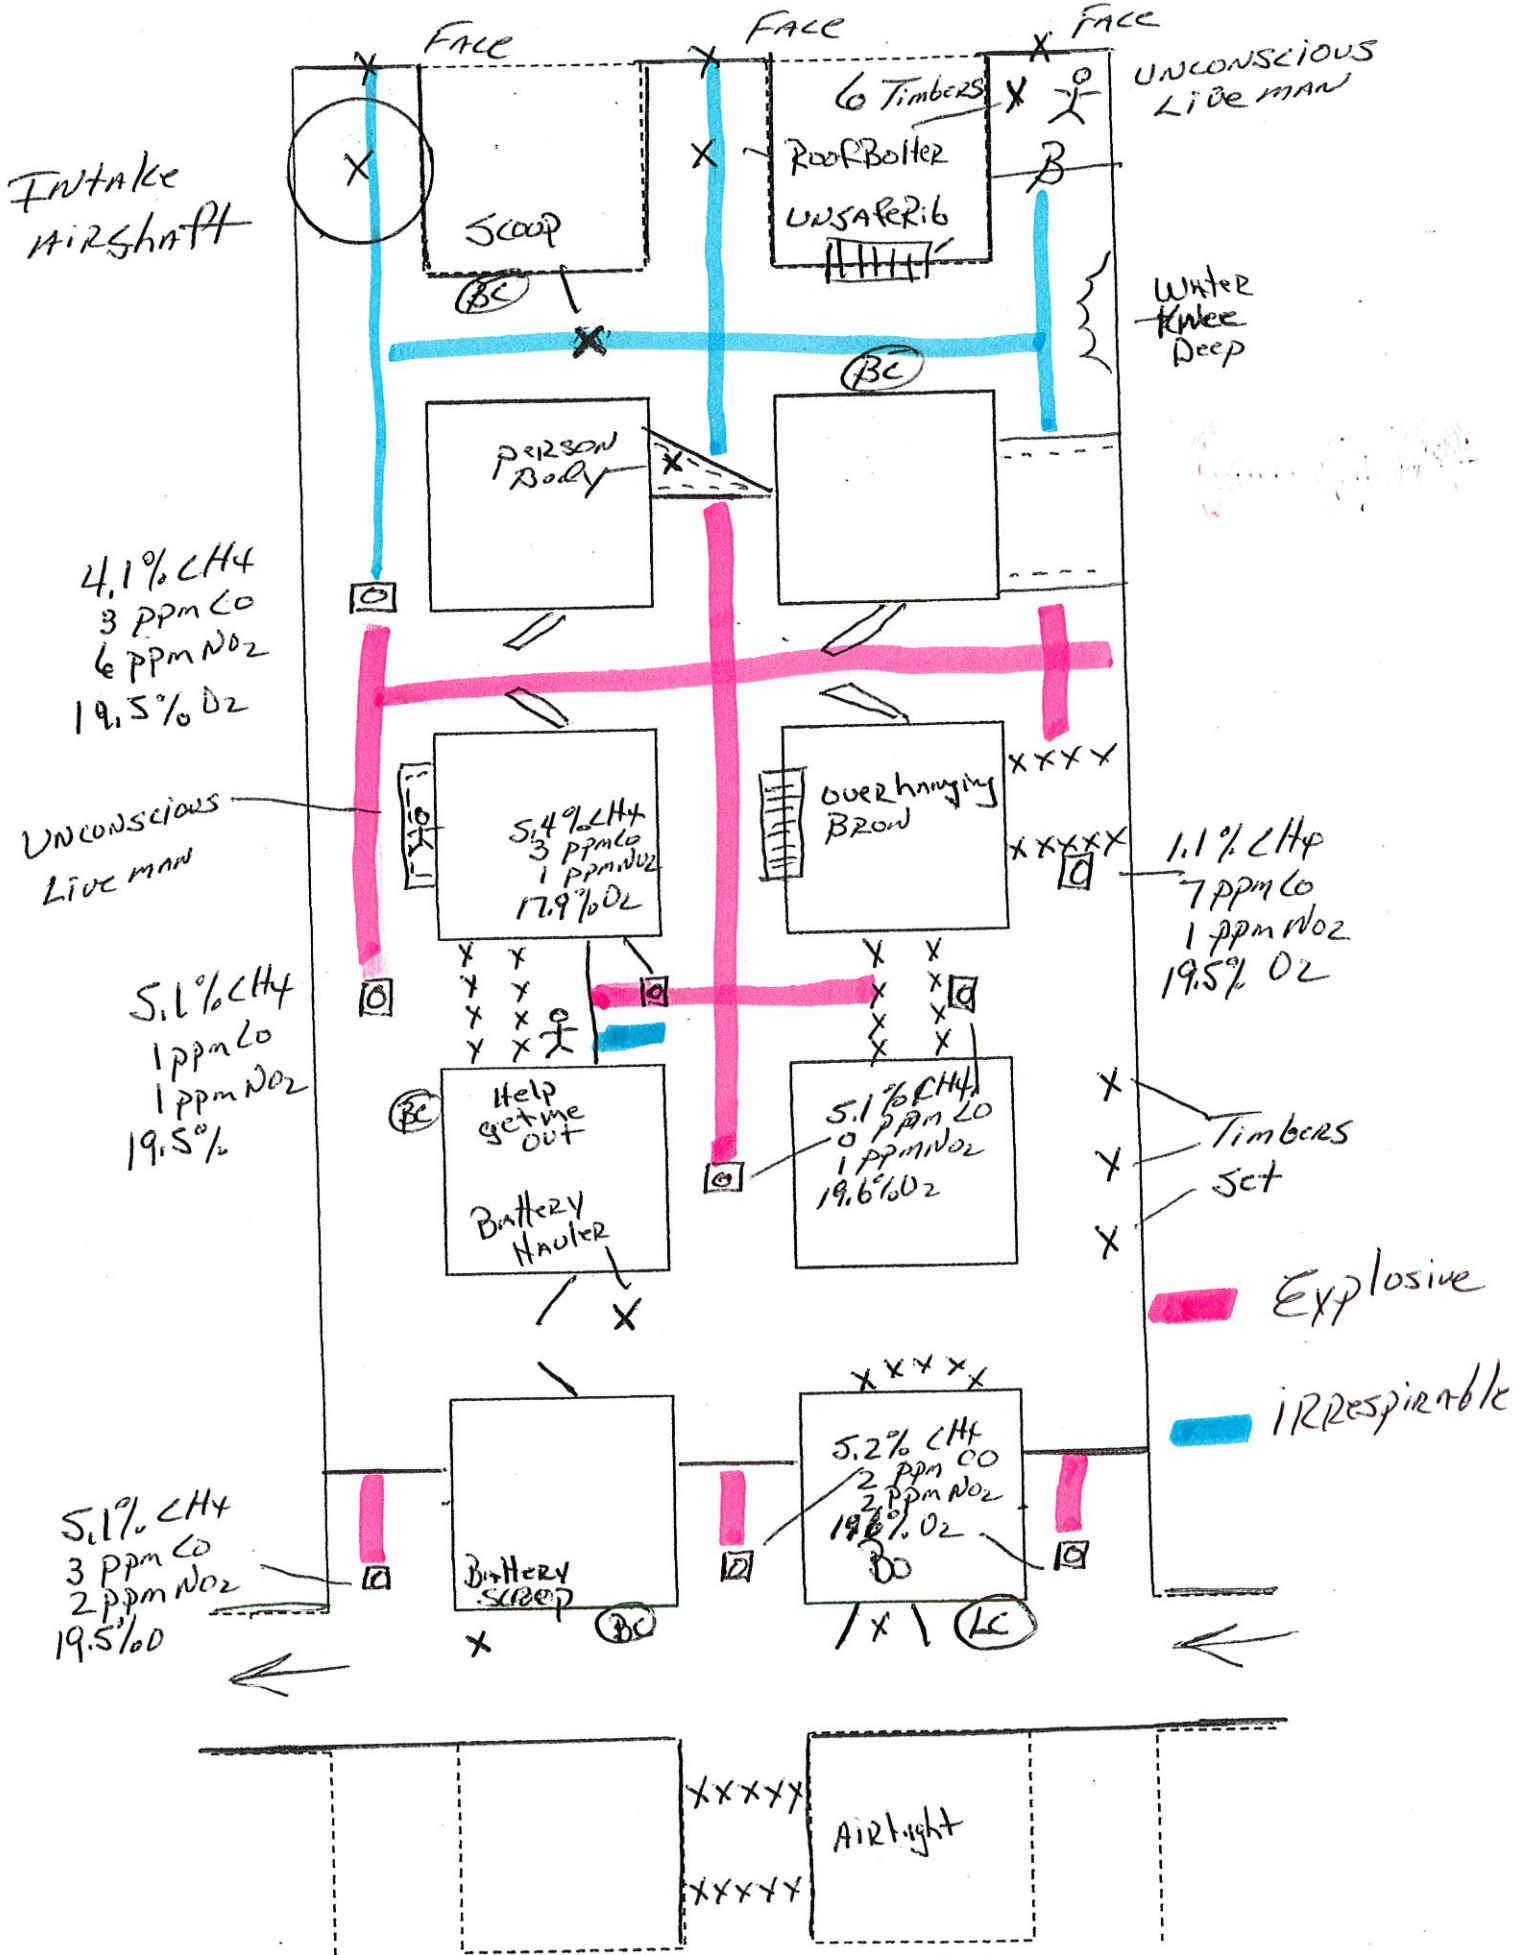 FACE
FACE
FACE
UNCONSCIOUS
Live MAN
6 Timbers
X
X
X
X
X
X
INTAKE
AIRShaft
RoofBolter
B
UNSAFeRib
Scoop
BC
X
Water
Knee
Deep
BC
person
Body
X
4.1% CH4
3 ppm Co
6 ppm NO2
19.5% O2
UNCONSCIOUS
Live MAN
5.4% CH4
3 ppm Co
1 ppm NO2
17.9% O2
overhanging
Brow
XXXX
XXXXX
1.1% CH4
7 ppm Co
1 ppm NO2
19.5% O2
5.1% CH4
1 ppm Co
1 ppm NO2
19.5%
X X
X X
X X
X X
X X
X X
X X
X X
BC
Help
get me
out
5.1% CH4
0 ppm Co
1 ppm NO2
19.6% O2
X
X
X
Timbers
Set
Battery
Hauler
X
Explosive
iRRespirable
XXXXX
5.2% CH4
2 ppm CO
2 ppm NO2
19.6% O2
BO
5.1% CH4
3 ppm Co
2 ppm NO2
19.5% O
Battery
Scoop
X
BC
X
LC
XXXXX
XXXXX
AIRtight